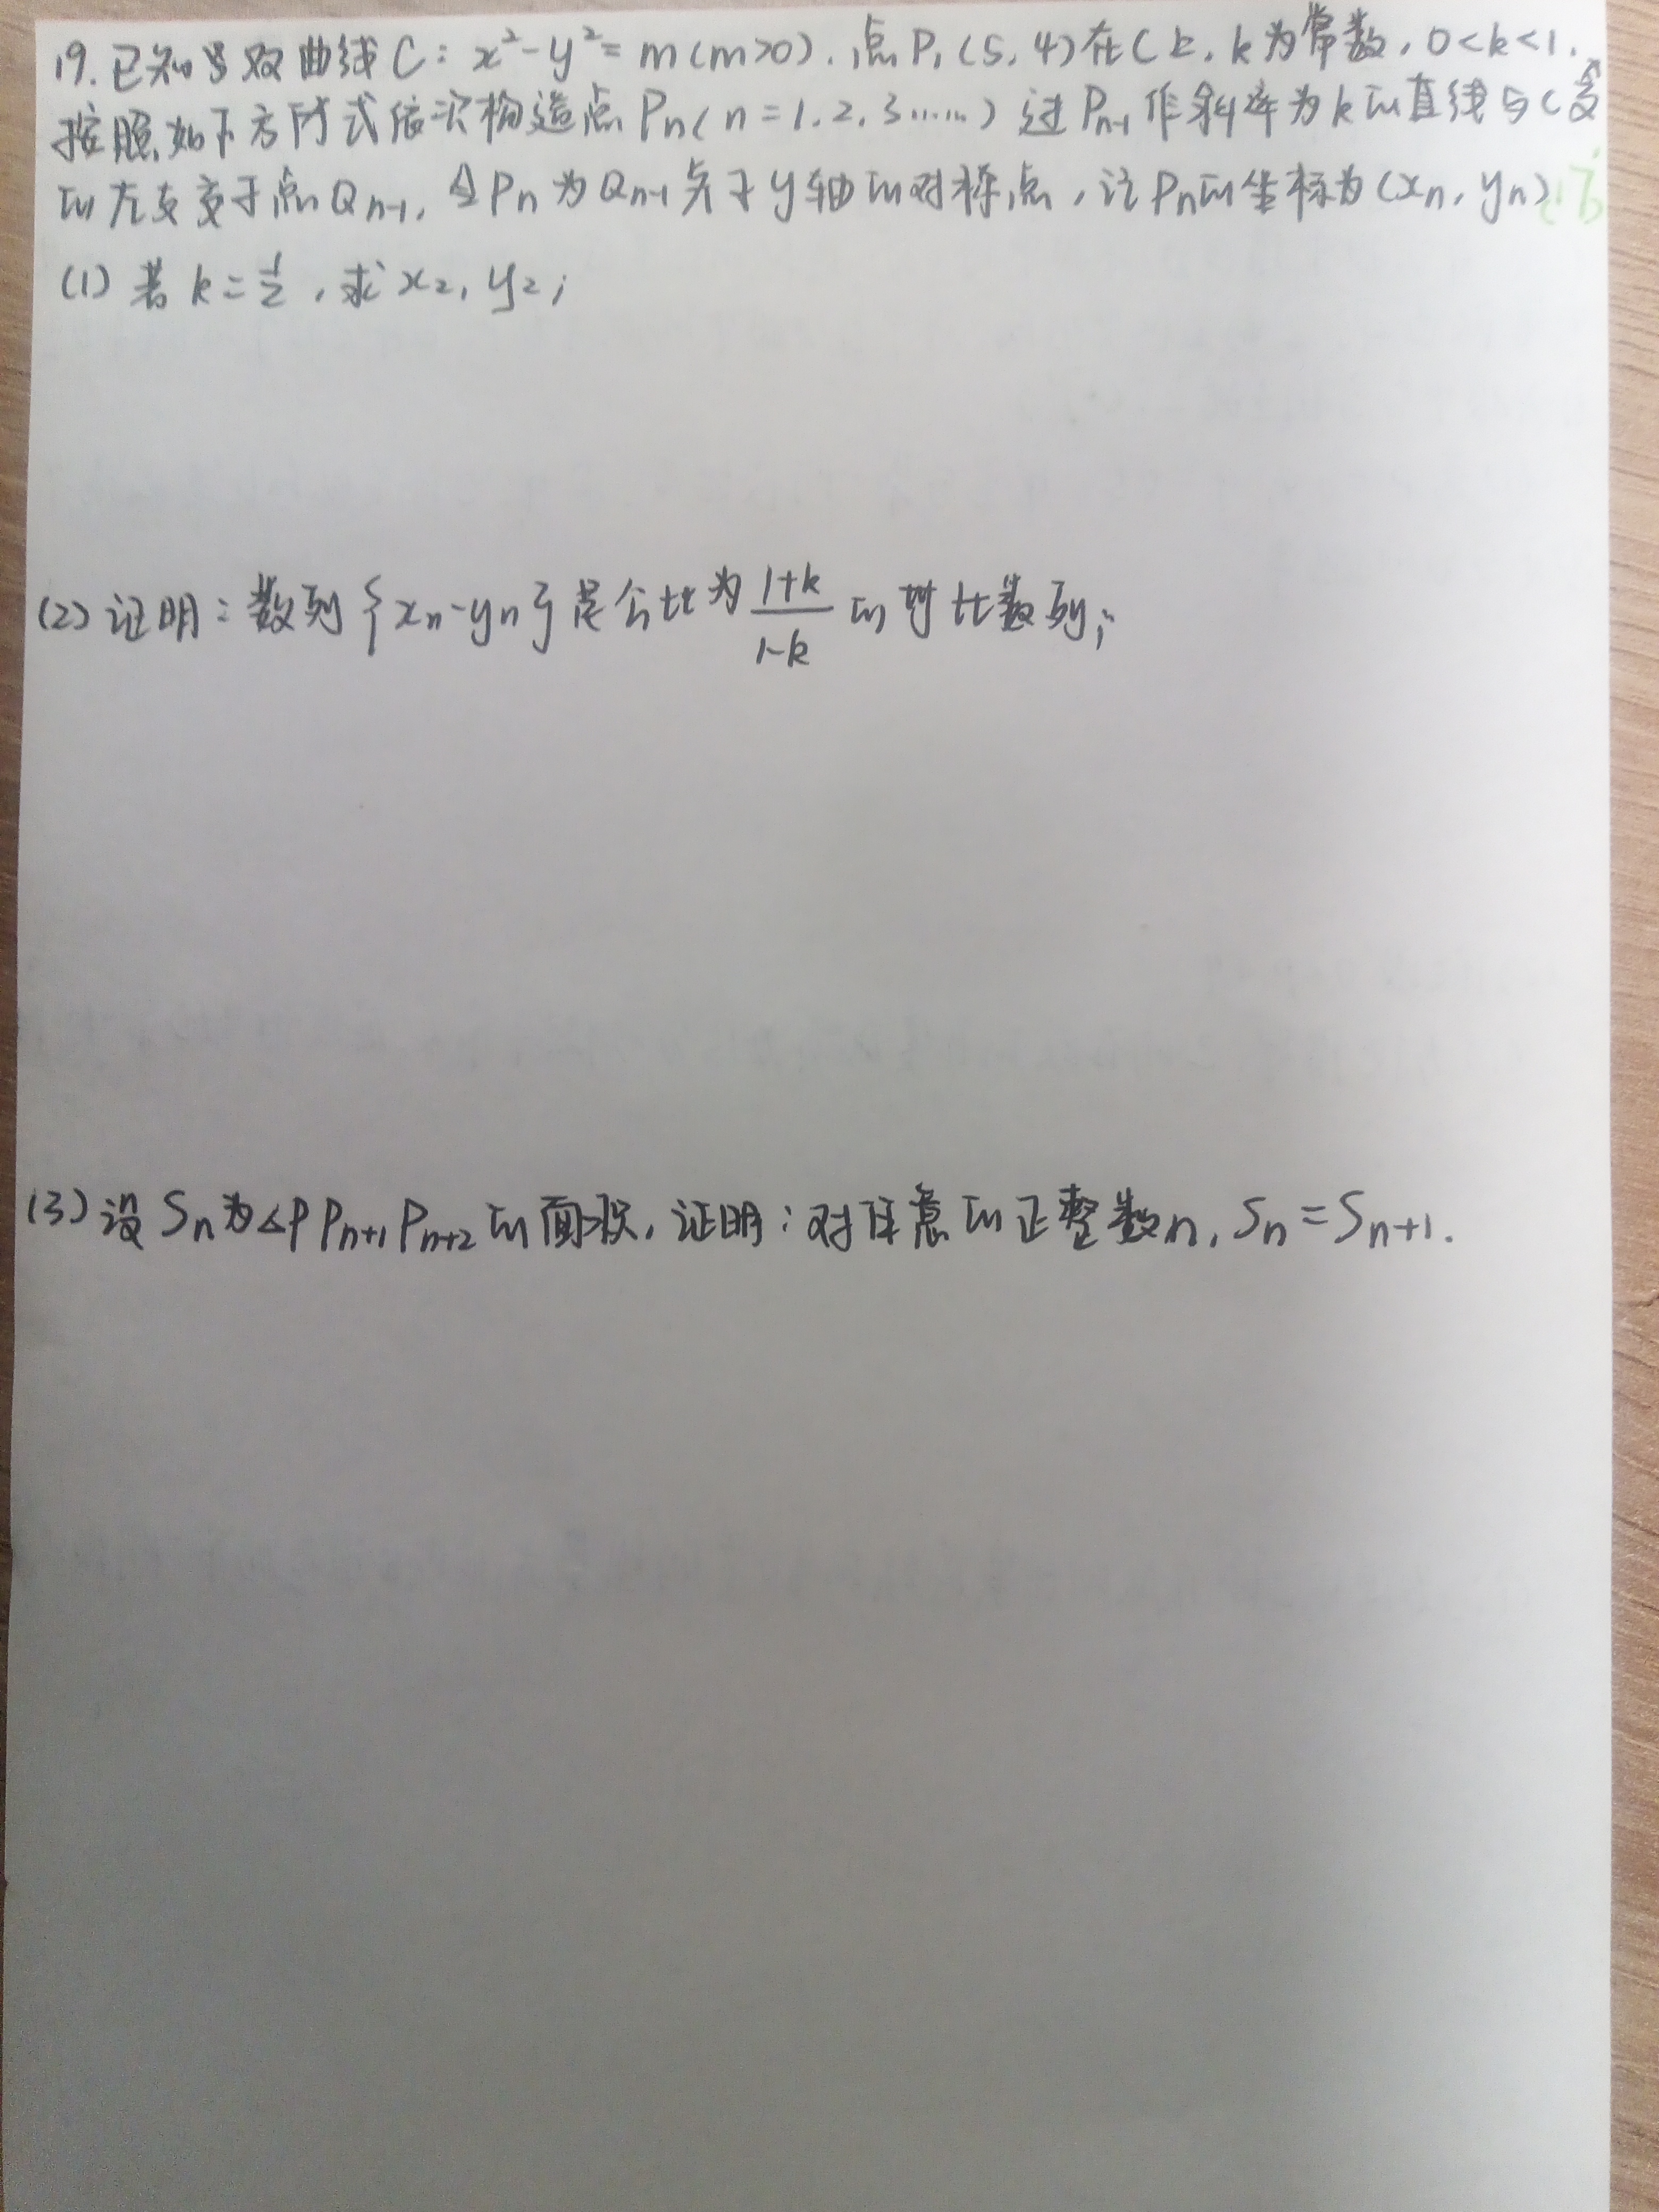 19. 已知双曲线 C: x²-y²=m(m>0). 点P₁(5,4)在C上, k为常数, 0<k<1.
按照如下方式依次构造点Pn(n=1.2.3……) 过Pn-1作斜率为k的直线与C
的左支交于点Qn-1, 令Pn为Qn-1关于y轴的对称点, 记Pn的坐标为(xn, yn)
(1) 若 k=1/2, 求x₂, y₂;
(2) 证明: 数列{xn-yn}是公比为(1+k)/(1-k)的等比数列;
(3) 设Sn为△PPn+1Pn+2的面积, 证明: 对任意的正整数n, Sn=Sn+1.